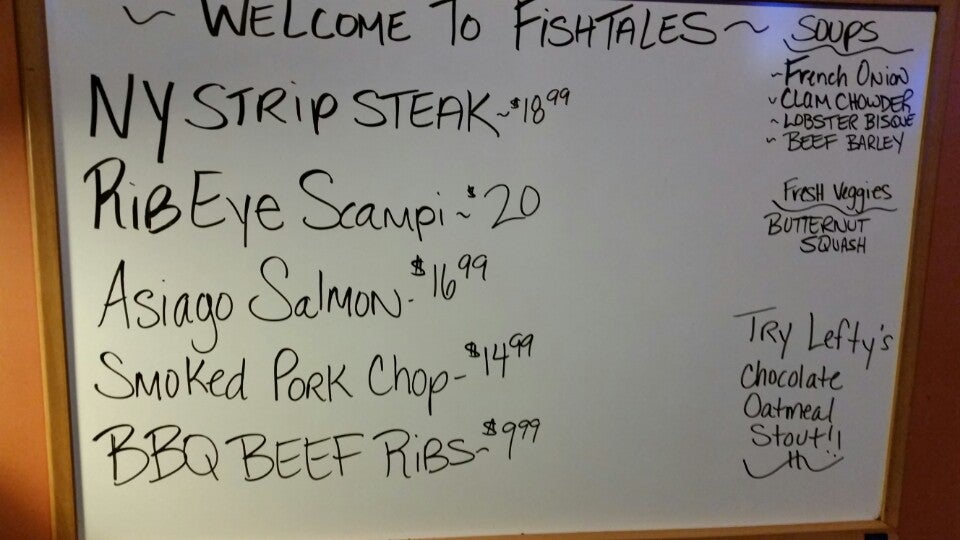 ~ WELCOME TO FISHTALES ~
NY STRIP STEAK ~ $18.99
RIB EYE Scampi ~ $20
Asiago Salmon - $16.99
Smoked Pork Chop - $14.99
BBQ BEEF RIBS ~ $9.99
SOUPS
~ French Onion
~ CLAM CHOWDER
~ LOBSTER BISQUE
~ BEEF BARLEY
Fresh Veggies
BUTTERNUT
SQUASH
TRY Lefty's
Chocolate
Oatmeal
Stout!!